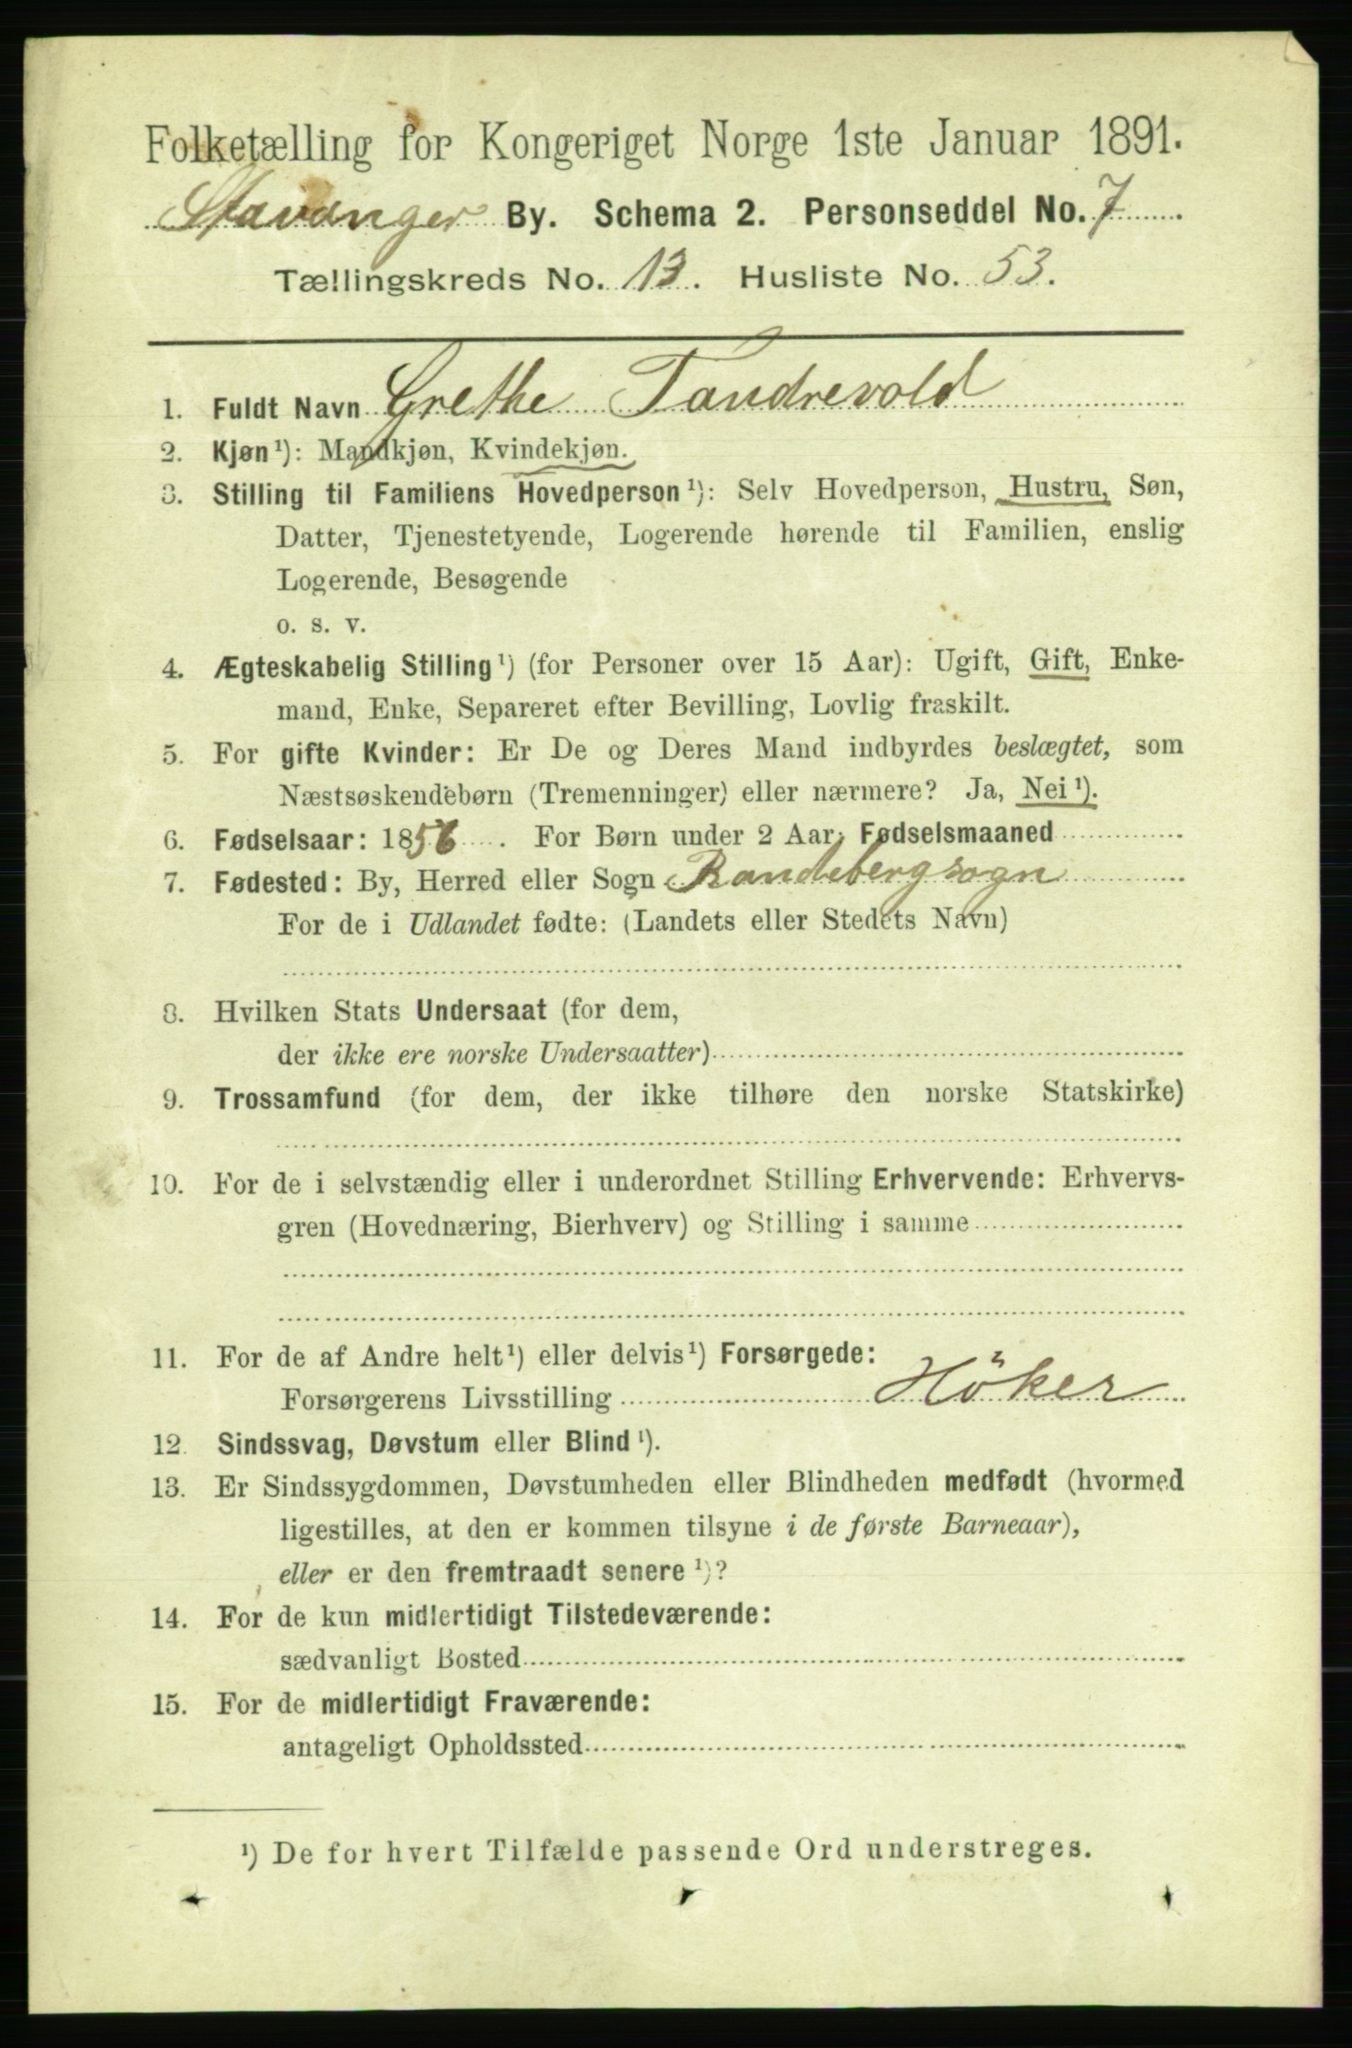 Folketælling for Kongeriget Norge 1ste Januar 1891.
Stavanger By. Schema 2. Personseddel No. 7
Tællingskreds No. 13. Husliste No. 53.
1. Fuldt Navn Grethe Tandrevold
2. Kjøn ¹): Mandkjøn, Kvindekjøn.
3. Stilling til Familiens Hovedperson ¹): Selv Hovedperson, Hustru, Søn,
Datter, Tjenestetyende, Logerende hørende til Familien, enslig
Logerende, Besøgende
o. s. v.
4. Ægteskabelig Stilling ¹) (for Personer over 15 Aar): Ugift, Gift, Enke-
mand, Enke, Separeret efter Bevilling, Lovlig fraskilt.
5. For gifte Kvinder: Er De og Deres Mand indbyrdes beslægtet, som
Næstsøskendebørn (Tremenninger) eller nærmere? Ja, Nei ¹).
6. Fødselsaar: 1856. For Børn under 2 Aar: Fødselsmaaned
7. Fødested: By, Herred eller Sogn Randeberg sogn
For de i Udlandet fødte: (Landets eller Stedets Navn)
8. Hvilken Stats Undersaat (for dem,
der ikke ere norske Undersaatter)
9. Trossamfund (for dem, der ikke tilhøre den norske Statskirke)
10. For de i selvstændig eller i underordnet Stilling Erhvervende: Erhvervs-
gren (Hovednæring, Bierhverv) og Stilling i samme
11. For de af Andre helt ¹) eller delvis ¹) Forsørgede:
Forsørgerens Livsstilling Höker
12. Sindssvag, Døvstum eller Blind ¹).
13. Er Sindssygdommen, Døvstumheden eller Blindheden medfødt (hvormed
ligestilles, at den er kommen tilsyne i de første Barneaar),
eller er den fremtraadt senere ¹)?
14. For de kun midlertidigt Tilstedeværende:
sædvanligt Bosted
15. For de midlertidigt Fraværende:
antageligt Opholdssted
¹) De for hvert Tilfælde passende Ord understreges.